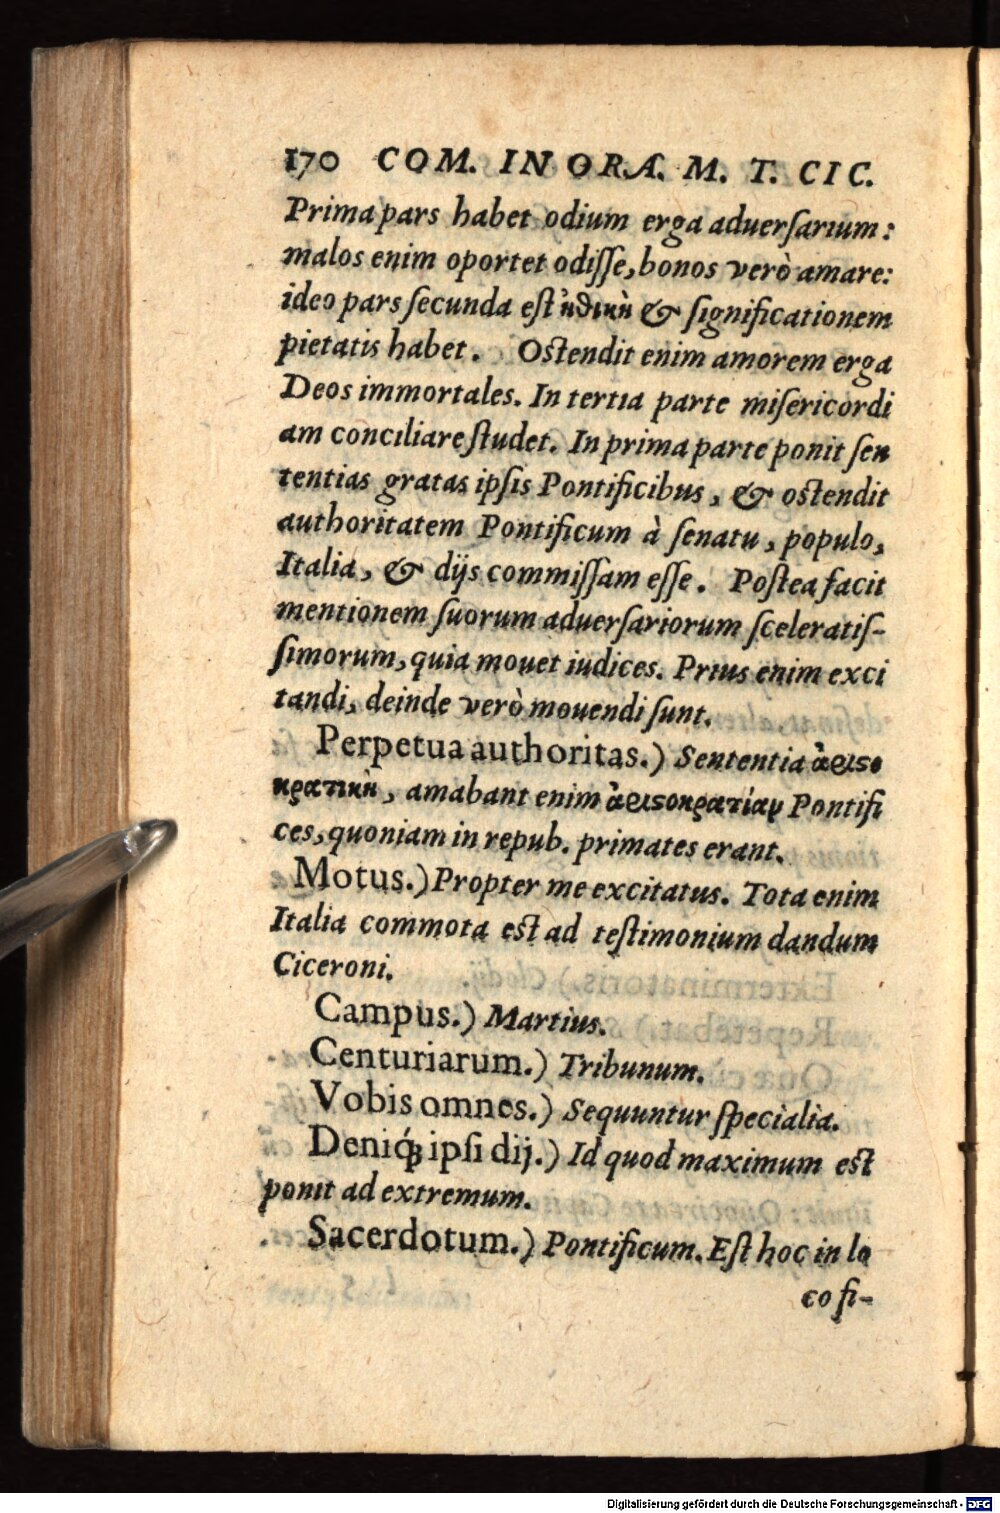 170 COM. IN ORA. M. T. CIC.
Prima pars habet odium erga aduerſarium:
malos enim oportet odiſſe, bonos verò amare:
ideo pars ſecunda eſt ἠθικὴ & ſignificationem
pietatis habet. Oſtendit enim amorem erga
Deos immortales. In tertia parte miſericordi
am conciliare ſtudet. In prima parte ponit ſen
tentias gratas ipſis Pontificibus, & oſtendit
authoritatem Pontificum à ſenatu, populo,
Italia, & dijs commiſſam eſſe. Poſtea facit
mentionem ſuorum aduerſariorum ſceleratiſ-
ſimorum, quia mouet iudices. Prius enim exci
tandi, deinde verò mouendi ſunt.
Perpetua authoritas.) Sententia ἀριςο
κρατικὴ, amabant enim ἀριςοκρατίαν Pontifi
ces, quoniam in repub. primates erant.
Motus.) Propter me excitatus. Tota enim
Italia commota eſt ad teſtimonium dandum
Ciceroni.
Campus.) Martius.
Centuriarum.) Tribunum.
Vobis omnes.) Sequuntur ſpecialia.
Deniq́ꝫ ipſi dij.) Id quod maximum eſt
ponit ad extremum.
Sacerdotum.) Pontificum. Eſt hoc in lo
co fi-
Digitalisierung gefördert durch die Deutsche Forschungsgemeinschaft - DFG